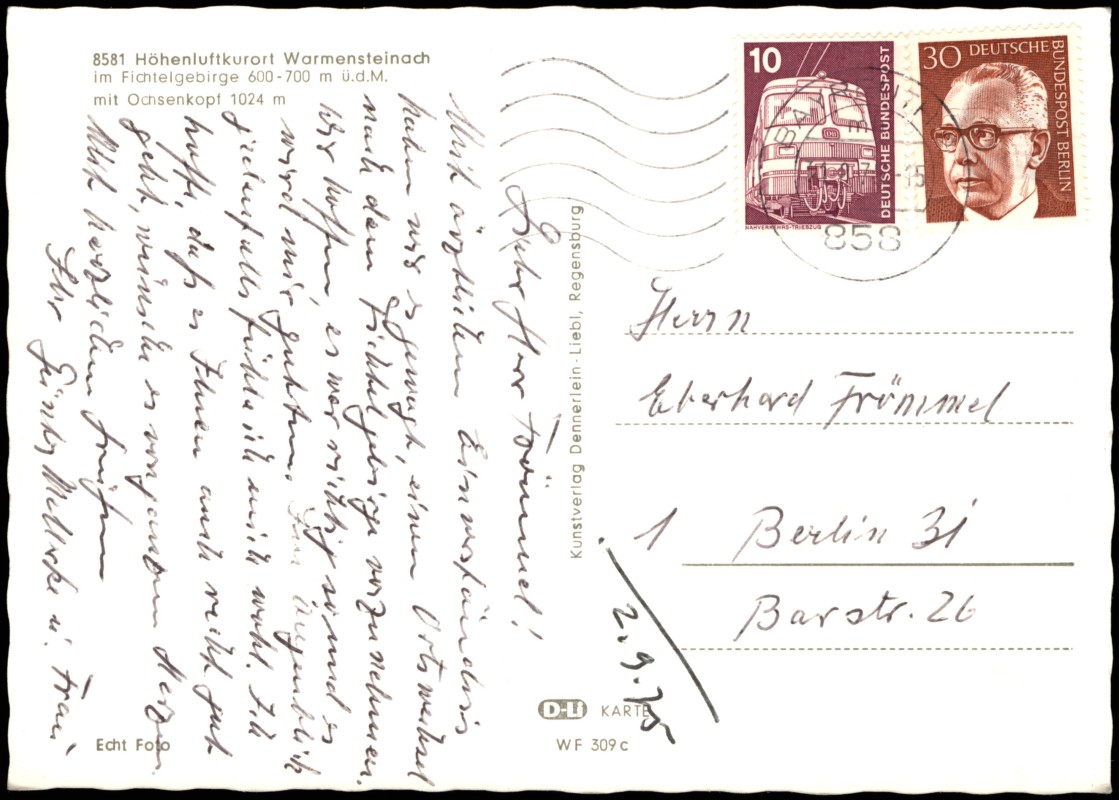 8581 Höhenluftkurort Warmensteinach
im Fichtelgebirge 600-700 m ü.d.M.
mit Ochsenkopf 1024 m
Sehr Herr Frömmel!
Mit ärztlichem Einverständnis
haben wir es gewagt, einen Ortswechsel
nach dem Fichtelgebirge vorzunehmen.
Wir hoffen es war richtig so und es
wird mir guttun. Im Augenblick
jedenfalls fühle ich mich wohl. Ich
hoffe, daß es Ihnen auch recht gut
geht, wünsche es von ganzem Herzen
Mit herzlichen Grüßen
Ihr
Günter u. Frau
Echt Foto
Kunstverlag Dennerlein-Liebl, Regensburg
D-Li KARTE
WF 309 c
10
DEUTSCHE BUNDESPOST
NAHVERKEHRS-TRIEBZUG
30 DEUTSCHE
BUNDESPOST BERLIN
858
Herrn
Eberhard Frömmel
1 Berlin 31
Barstr. 26
2.9.75